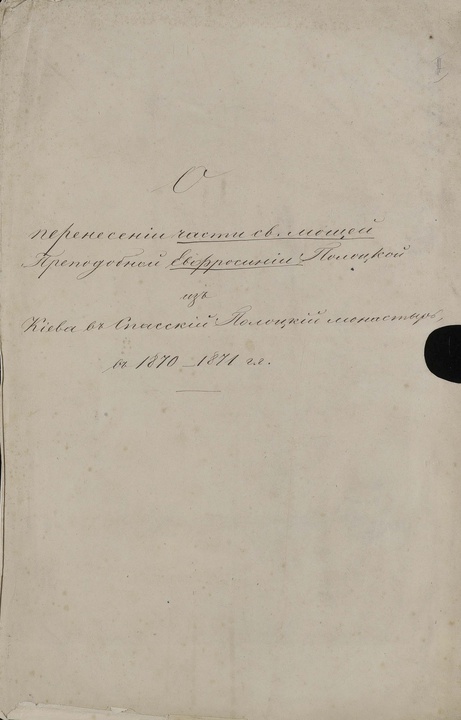 О
перенесеніи части св. мощей
Преподобной Евфросиніи Полоцкой
изъ
Кіева въ Спасскій Полоцкій монастырь,
въ 1870–1871 гг.